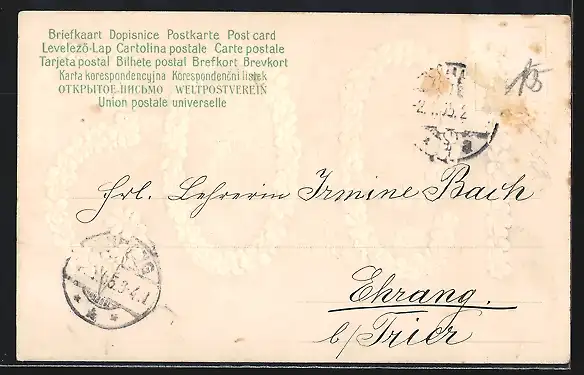 Briefkaart Dopisnice Postkarte Post card
Levelező-Lap Cartolina postale Carte postale
Tarjeta postal Bilhete postal Brefkort Brevkort
Karta korespondencyjna Korespondenční listek
ОТКРЫТОЕ ПИСЬМО WELTPOSTVEREIN
Union postale universelle
15
Frl. Lehrerin Irmine Bach
Ehrang.
b/Trier